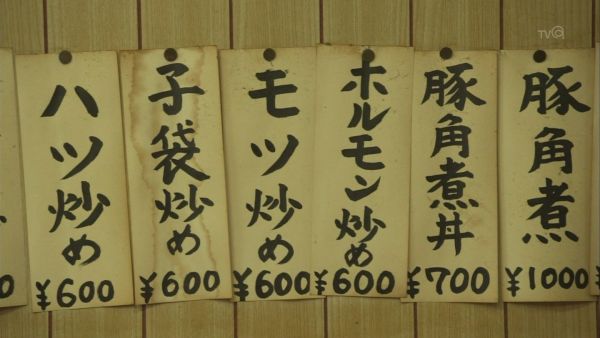 豚角煮
¥1000
豚角煮丼
¥700
ホルモン炒め
¥600
モツ炒め
¥600
子袋炒め
¥600
ハツ炒め
¥600
TVQ